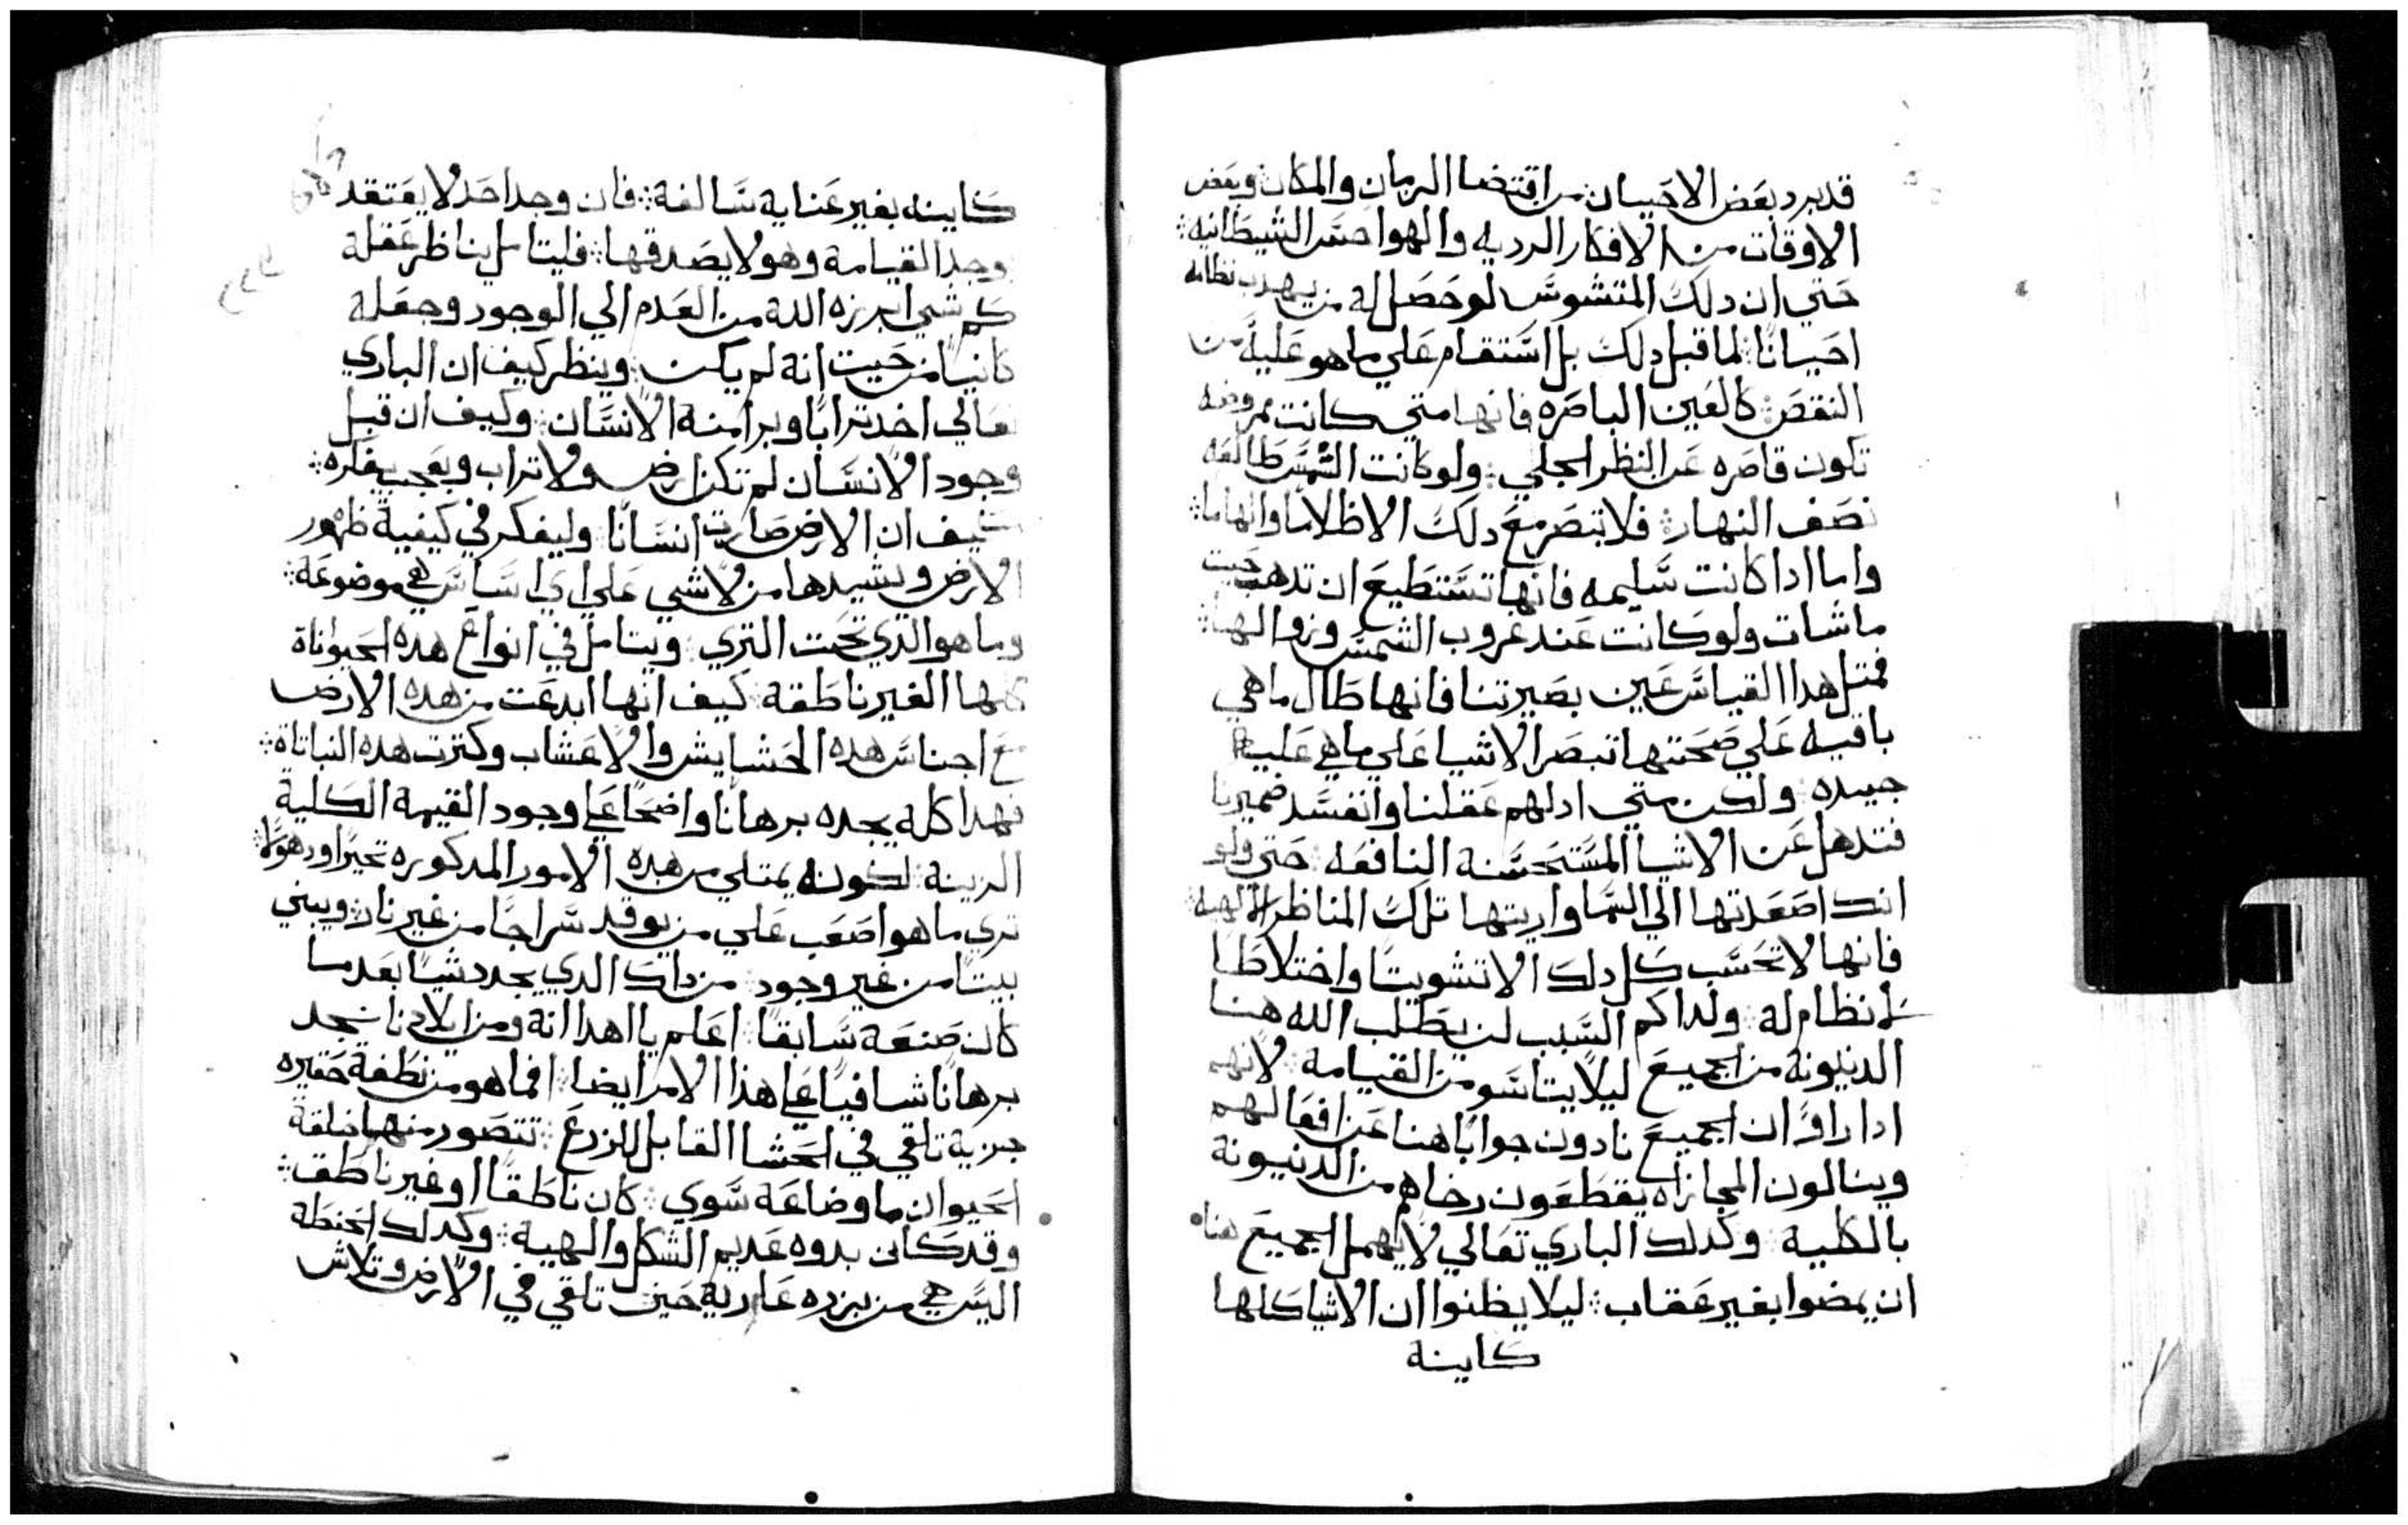 قد يرد بعض الاحيان من اقتضا الزمان والمكان وبعض
الاوقات من الافكار الرديه والهواجس الشيطانيه
حتي ان دلك المتشوش لو حصل له من يهدب نظامه
احيانًا لما قبل دلك بل استقام علي ما هو عليه من
النقص كالعين الباصره فانها متي كانت ممروضه
تكون قاصره عن النظر الجلي ولو كانت الشمس طالعه
نصف النهار فلا تبصر مع دلك الا ظلامًا وابهاما
واما ادا كانت سليمه فانها تستطيع ان تدهب حيت
ما شات ولو كانت عند غروب الشمس وزوالها
فمتل هدا القياس عين بصيرتنا فانها طال ما هي
باقيه علي صحتها تبصر الاشيا علي ما هي عليه
جيده ولكن متي ادلهم عقلنا وانفسد ضميرنا
فتدهل عن الاشيا المستحسنة النافعه حتي ولو
انك اصعدتها الي السما واريتها تلك المناظر الالهيه
فانها لا تحسب كل دلك الا تشويتًا واختلاطًا
لا نظام له ولداكم السبب لن يطلب الله هنا
الدينونة من الجميع ليلا يتاسو من القيامة لانهم
ادا راوا ان الجميع نادون جوابًا هنا عن افعالهم
وينالون المجازاه يقطعون رخاهم من الدينونة
بالكلية وكدلك الباري تعالي لا يهمل الجميع هنا
ان يمضوا بغير عقاب ليلا يظنوا ان الاشيا كلها
كاينة
كاينه بغير عناية سالفة فان وجد احد لا يعتقد
وجد القيامة وهو لا يصدقها فليتامل بناظر عقله
كم شي ابرزه الله من العدم الي الوجود وجعله
كانيًا من حيت انه لم يكن وينظر كيف ان الباري
تعالي اخد ترابًا وبرا منه الانسان وكيف ان قبل
وجود الانسان لم تكن ارض ولا تراب ويعجب بفكره
كيف ان الارض صارت انسانًا وليفكر في كيفية ظهور
الارض وتشيدها من لا شي علي اي اساس هي موضوعة
وما هو الدي تحت التري ويتامل في انواع هده الحيواناة
كلها الغير ناطقة كيف انها ابدعت من هده الارض
مع اجناس هده الحشايش والاعشاب وكترت هده النباتاة
فهدا كله يجده برهانًا واضحًا علي وجود القيمة الكلية
الرينة لكونه يمتلي من هده الامور المدكوره تحيرًا ودهولًا
تري ما هو اصعب علي من يوقد سراجًا من غير نار ويبني
بيتًا من غير وجود من داك الدي يجدد شيًا بعد ما
كان صنعه سابقًا اعلم يا اهدا انه ومن ايلادنا نجد
برهانًا شافيًا علي هذا الامر ايضا افما هو من نطفة حقيره
جزية تلقي في الحشا القابل للزرع تتصور منها خلقة
الحيوان ما وضاعة سوي كان ناطقًا او غير ناطق
وقد كان بدوه عديم الشكل والهية وكدلك الحنطة
اليس هي من بزره عارية حين تلقي في الارض وتلاش